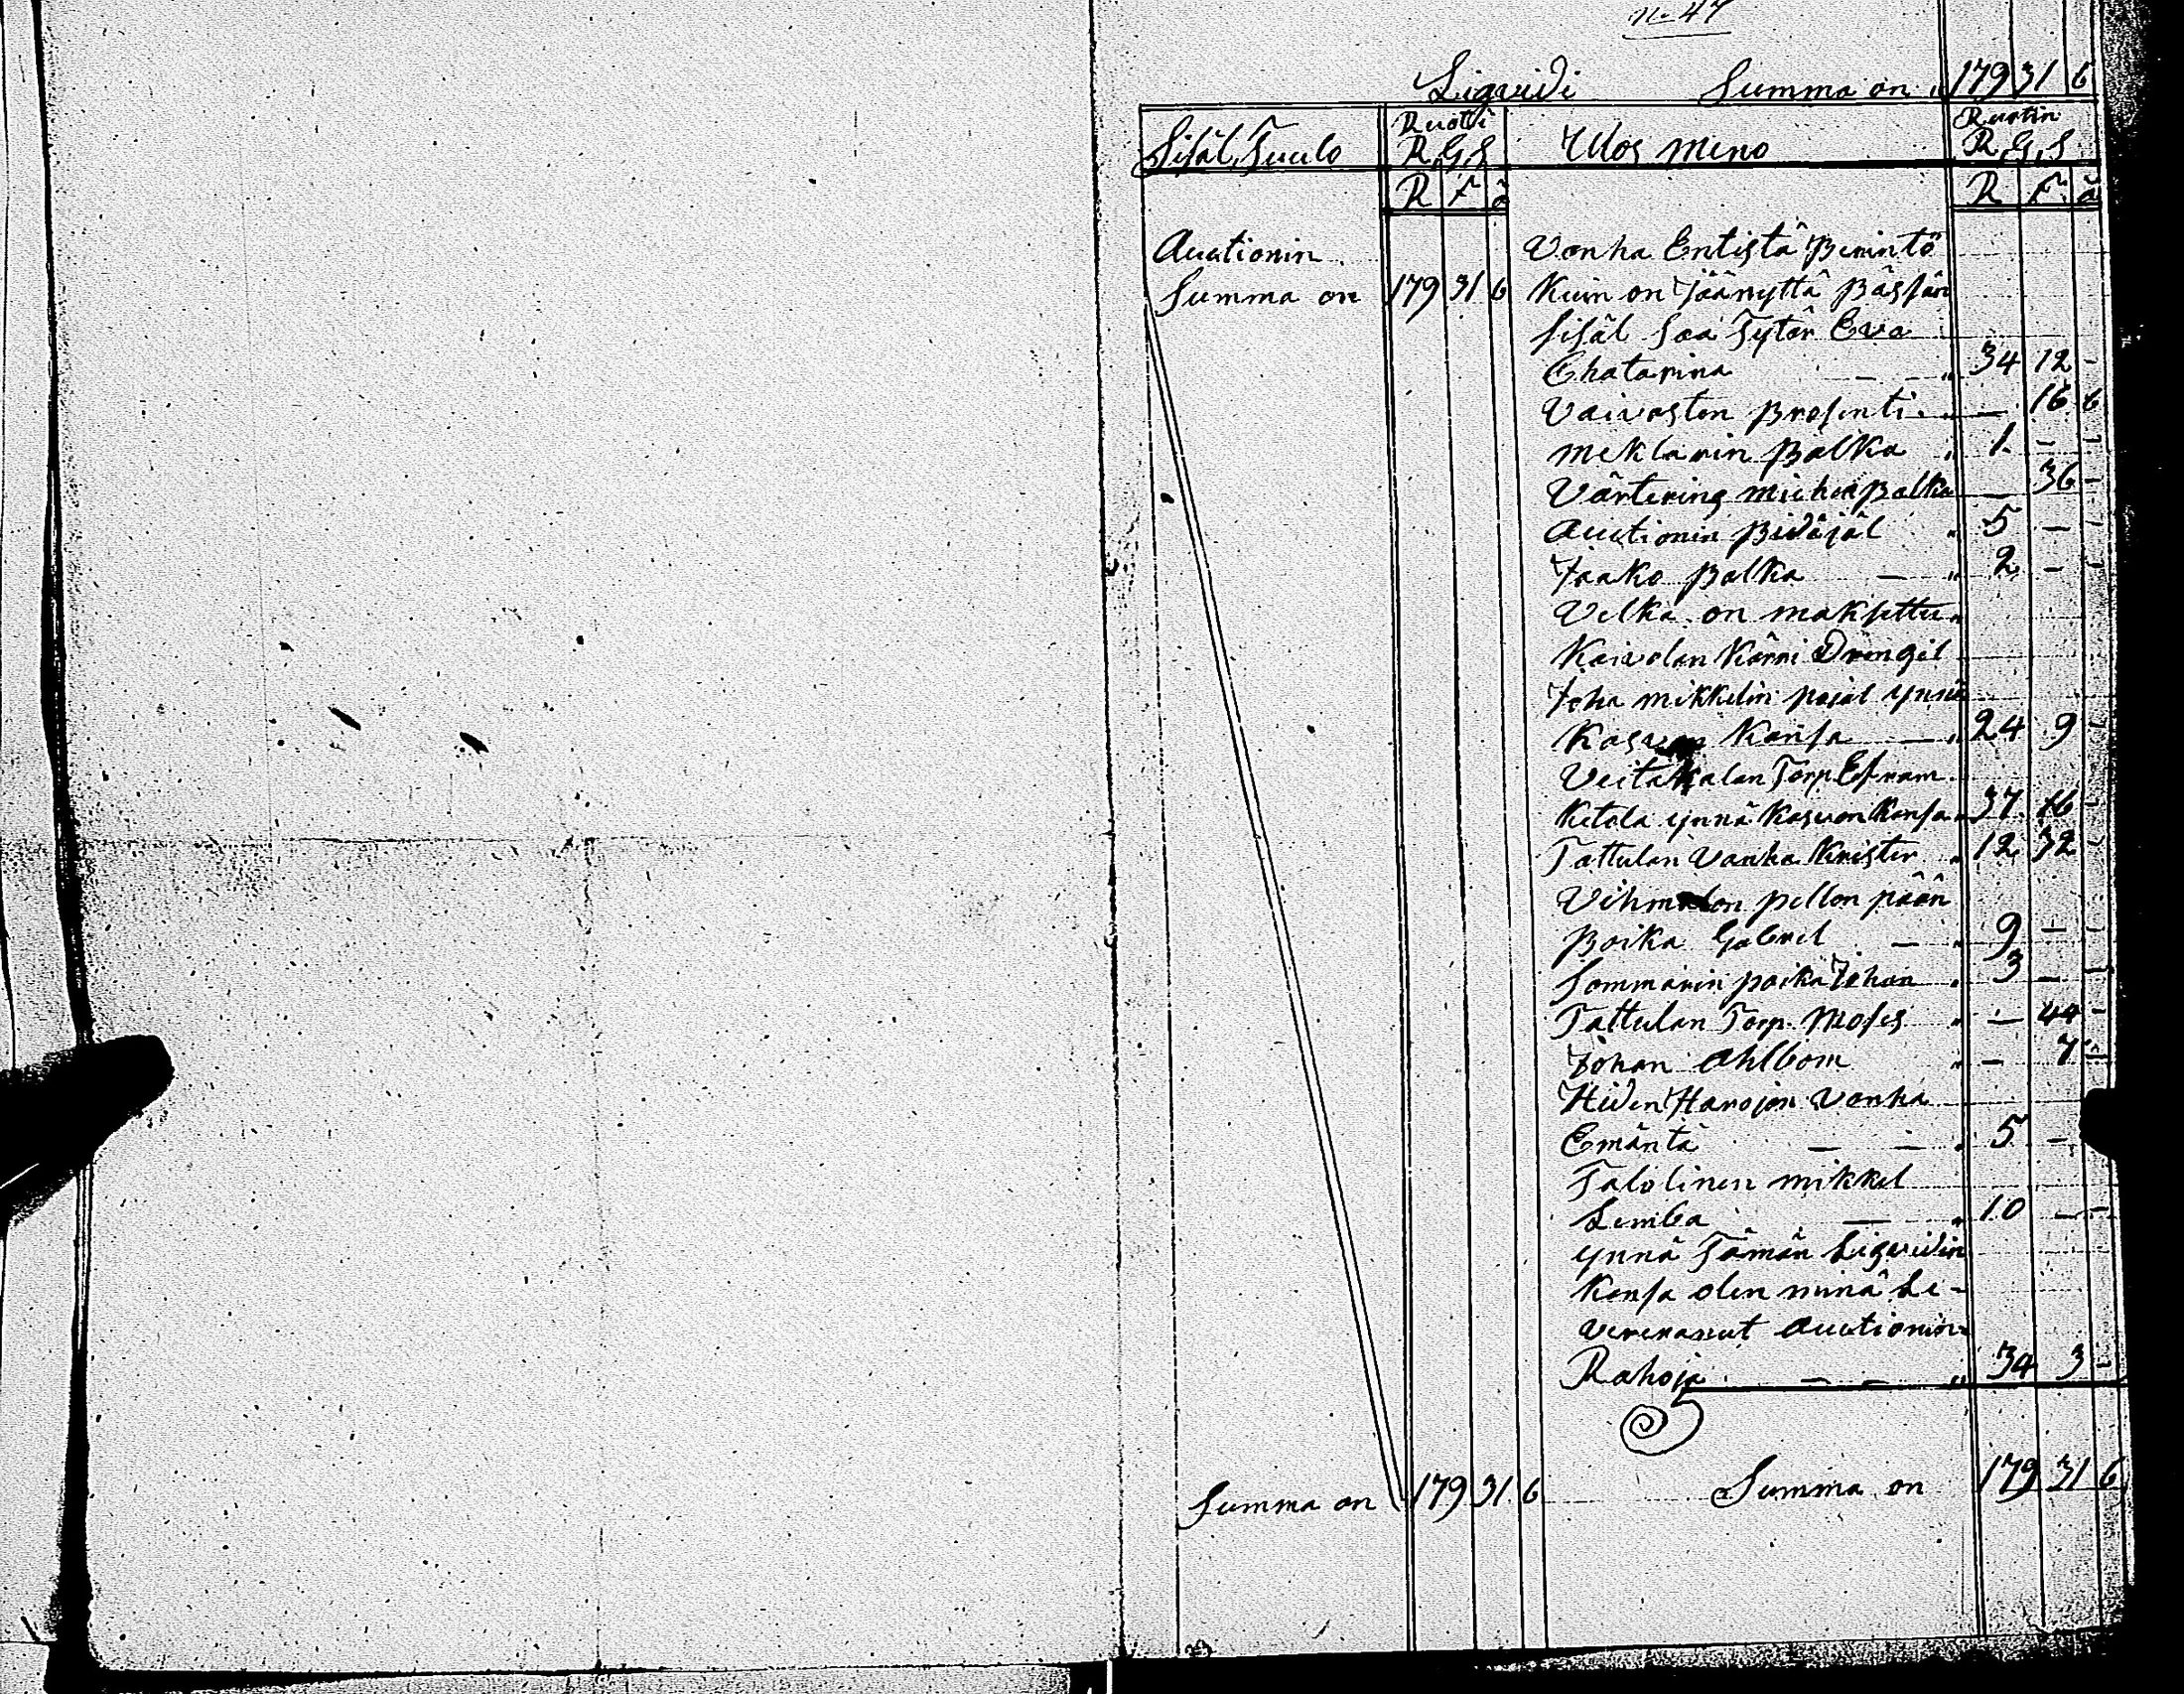 No 47
Liqvidi Summa on „ 179 31 6
Sisäl Tuulo Ruotti R. G. S Ulos meno Ruotin R. G. S
R F ö R F. ö
Auctionin Vanha Entistä Perintö
Summa on 179 31 6 Kuin on Jäänyttä Päsfän
sisäl saa Tytär Eva
Chatarina — — „ 34 12 -
Vaivasten Prosenti „ — 16 6
meklarin Palka „ 1 - -
Värtering miehen Palka — 36 -
Auctionin Pidäjäl „ 5 — -
Jaako Palka — „ 2 - -
Velka on maksettu „
Kaivolan Kärni Drengil
Joha mikkelin pojal ynnä
Kasvon Kansa — „ 24 9 -
Veitakkalan Torp. Efram
Ketola ynnä Kasvon Kansa „ 37 16 -
Tattulan Vanha Krister „ 12 32 -
Vihmalon pellon pään
Poika Gabriel — „ 9 — -
Sommarin poika Johan „ 3 — -
Tattulan Torp. Moses „ — 44 -
Johan Ahlbom „ — 7 -
Hiden Harojan Vanha
Emäntä — — „ 5 —
Talolinen mikkel
Lemba — „ 10 — -
ynnä Tämän Liqvidin
Kansa olen minä Le-
verenanut Auctionin
Rahoja — — „ 34 3 -
Summa on 179 31 6 Summa on 179 31 6